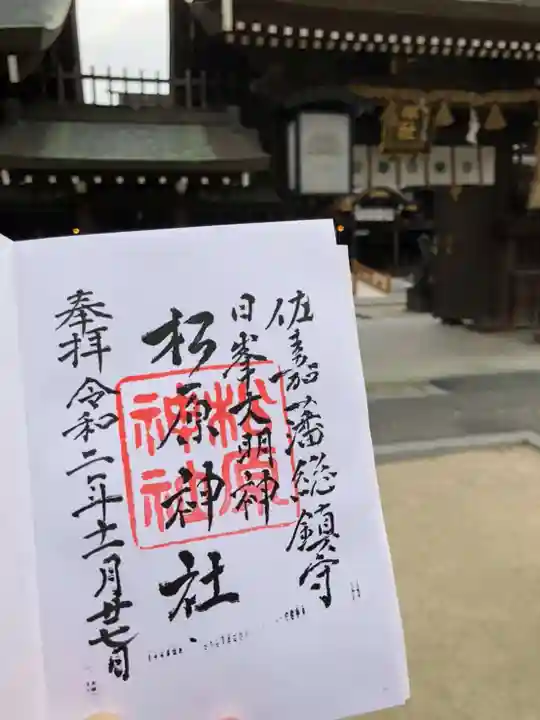 佐嘉藩総鎮守
日峯大明神
松原神社
松原
神社
奉拝 令和二年十一月廿七日